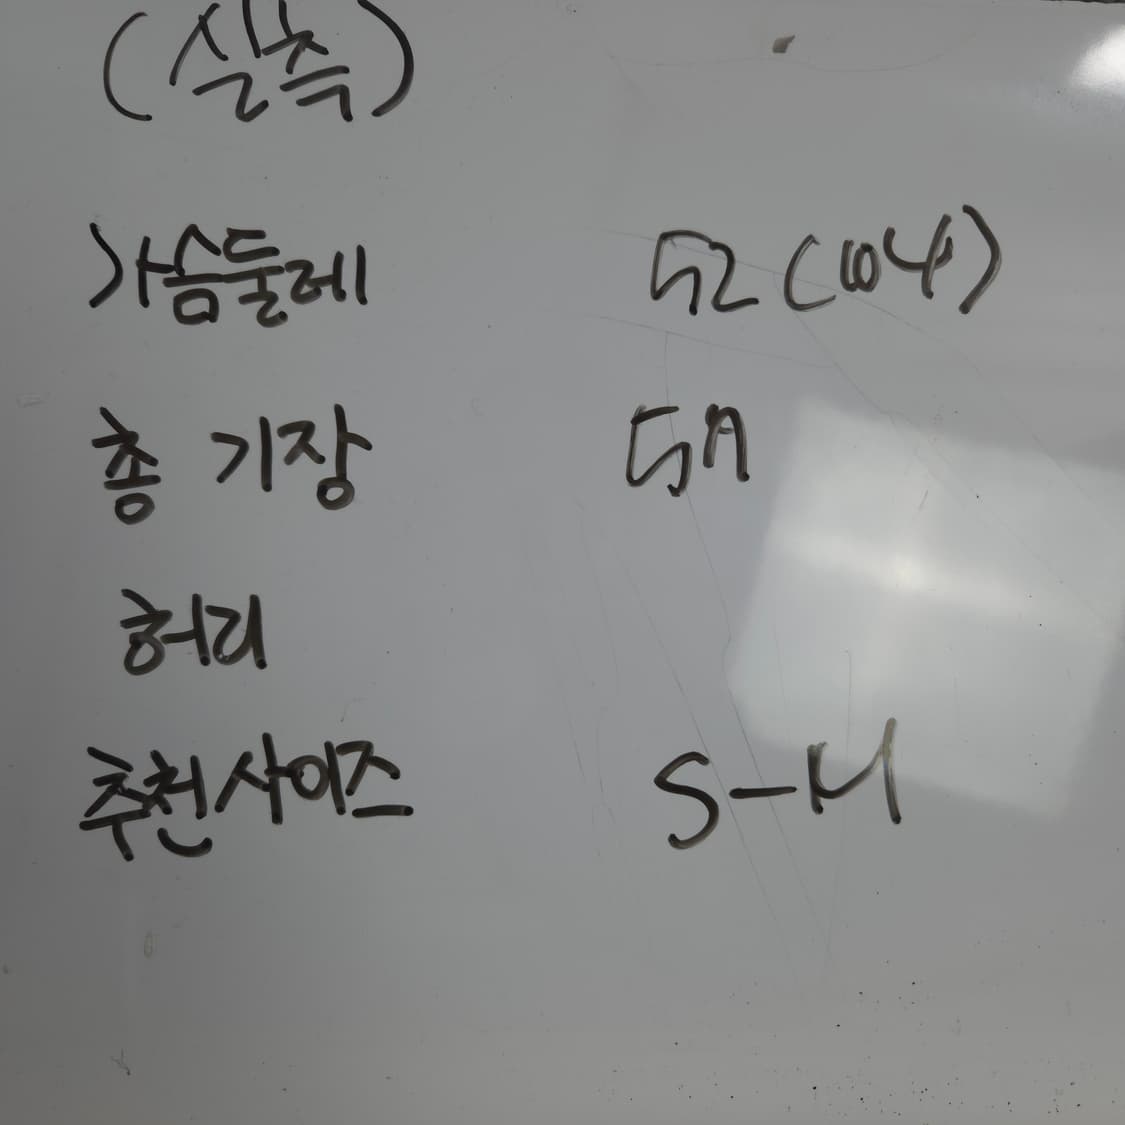 (실측)
가슴둘레 52 (104)
총 기장 57
허리
추천사이즈 S-M